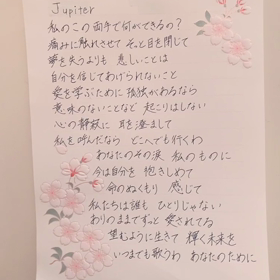 Jupiter
私のこの両手で何ができるの?
痛みに触れさせて そっと目を閉じて
夢を失うよりも 悲しいことは
自分を信じてあげられないこと
愛を学ぶために 孤独があるなら
意味のないことなど 起こりはしない
心の静寂に 耳を澄まして
私を呼んだなら どこへでも行くわ
あなたのその涙 私のものに
今は自分を 抱きしめて
命のぬくもり 感じて
私たちは誰も ひとりじゃない
ありのままでずっと 愛されてる
望むように生きて 輝く未来を
いつまでも歌うわ あなたのために